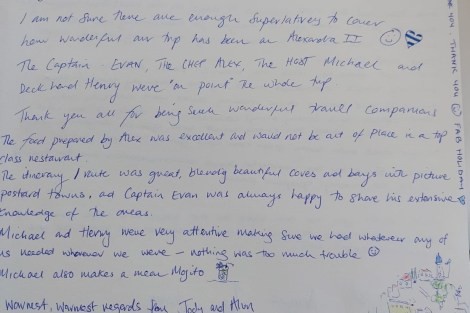 I am not sure there are enough superlatives to cover
how wonderful our trip has been on Alexandra II
The Captain EVAN, The CHEF ALEX, The HOST Michael and
Deck hand Henry were "on point" the whole trip
Thank you all for being such wonderful travel companions
The food prepared by Alex was excellent and would not be out of place in a top
class restaurant.
The itinerary / route was great, blending beautiful coves and bays with picture
postcard towns, ad Captain Evan was always happy to share his extensive
knowledge of the areas.
Michael and Henry were very attentive making sure we had whatever any of
us needed wherever we were – nothing was too much trouble
Michael also makes a mean Mojito
Warmest, warmest regards from Jody and Alun
THANK YOU
FAB HOLIDAY